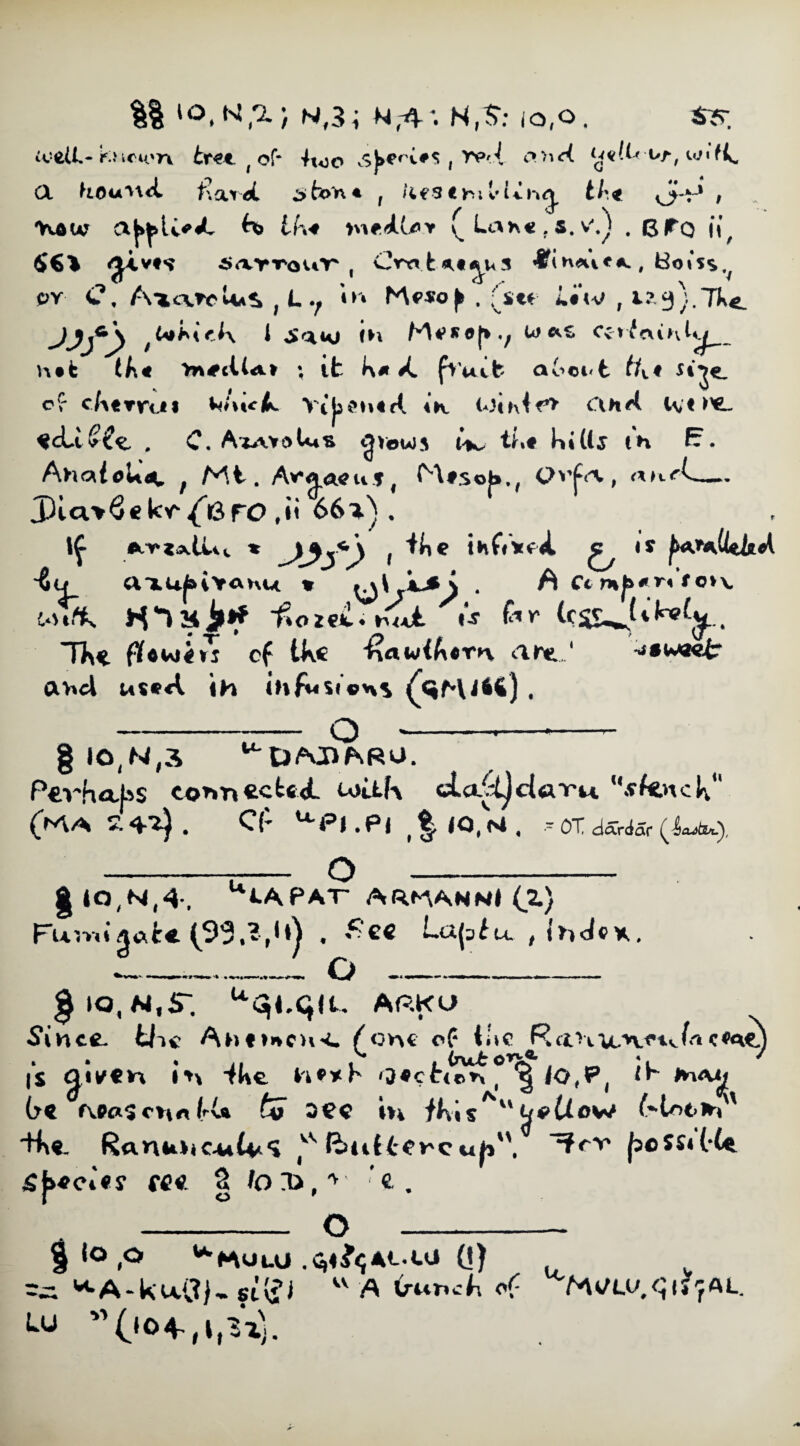 §§ 10, N,2; N,3; N,4; N,5; 10,O. 55.
well-known tree, of two species, red and yellow, with
a round hard stone, resembling the
now applied to the medlar (Lane, s.v.). BFO ii,
661 gives sarrour, Crataegus Boiss.,
or C. Azarolus, L., in Mesop. (see Löw, 129). The
which I saw in Mesop., was certainly
not the medlar; it had fruit about the size
of cherries which ripened in winter and were
edible. C. Azarolus grows in the hills in E.
Anatolia, Mt. Argaeus, Mesop., Orfa, and
Diarbekr (BFO, ii 662).
If is paralleled
by . A comparison
with "hozel-nut" is far less likely.
The flowers of the hawthorn are sweet
and used in infusions
O
§ 10,N,3 ᵘDADARU.
Perhaps connected with daddaru "stench"
(MA 242). Cf. ᵘPI.PI, § 10,N. = OT. dardar
O
§ 10,N,4. ᵘLAPAT ARMANNI (2)
Fumigate (93,2,11). See Laptu, index.
O
§ 10,N,5. ᵘGI.GIL ARKU
Since the Anemone (one of the Ranunculaceae)
is given in the next section, § 10,P, it may
be reasonable to see in this "yellow bloom" but one
the Ranunculus "Buttercup". For possible
species see § 10 D,
O
§ 10,O ᵘMULU (!)
= ᵘA-ku(?)-si(?) "A bunch of ᵘMULU.
LU" (104,1,32).